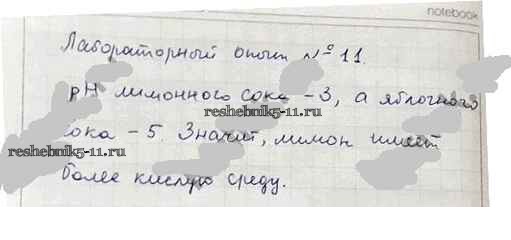 notebook
Лабораторный опыт №11.
pH лимонного сока -3, а яблочного
reshebnik5-11.ru
сока - 5. Значит, лимон имеет
reshebnik5-11.ru
более кислую среду.